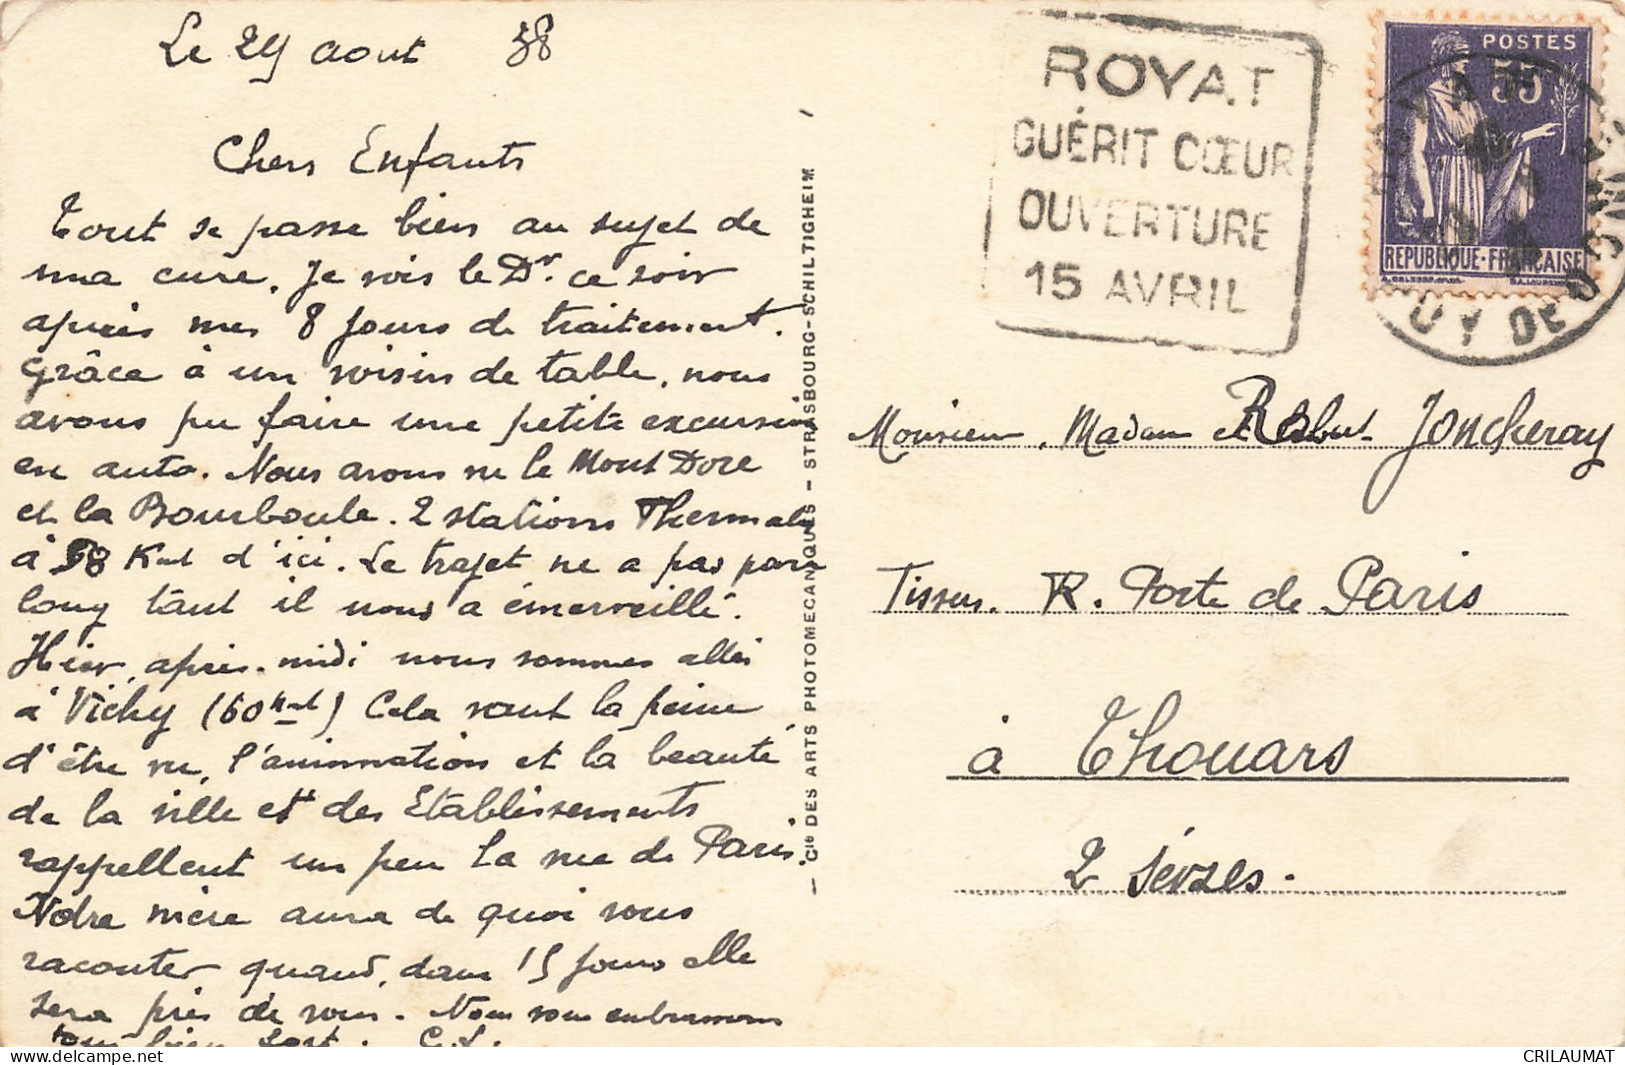 Le 29 aout 38
Chers Enfants
Tout se passe bien au sujet de
ma cure. Je vois le Dr. ce soir
après mes 8 jours de traitement.
Grâce à un voisin de table, nous
avons pu faire une petite excursion
en auto. Nous avons vu le Mont Dore
et la Bourboule. 2 stations Thermales
à 58 Kml d'ici. Le trajet ne a pas paru
long tant il nous a émerveillé.
Hier, après-midi nous sommes allés
à Vichy (60 kml) Cela vaut la peine
d'être vu, l'animation et la beauté
de la ville et des Etablissements
rappellent un peu la vue de Paris.
Notre mère aura de quoi vous
raconter quand, dans 15 jours elle
sera près de vous. Nous vous embrassons
tous bien fort. G.L.
- Cie DES ARTS PHOTOMECANIQUES - STRASBOURG-SCHILTIGHEIM -
ROYAT
GUÉRIT CŒUR
OUVERTURE
15 AVRIL
POSTES
55
REPUBLIQUE·FRANÇAISE
ROYAT
PUY DE DOME
Monsieur, Madame et Robert Joncheray
Tissus. R. Porte de Paris
à Thouars
2 Sèvres.
CRILAUMAT